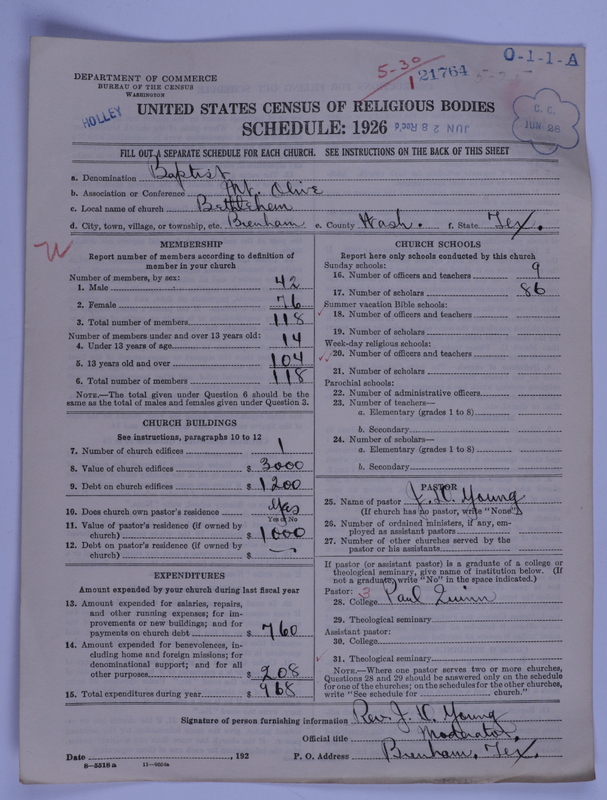 5-30
O-1-1-A
DEPARTMENT OF COMMERCE
BUREAU OF THE CENSUS
WASHINGTON
21764
HOLLEY
UNITED STATES CENSUS OF RELIGIOUS BODIES
SCHEDULE: 1926
JUN 28 Rec'd
C. C.
JUN 28
FILL OUT A SEPARATE SCHEDULE FOR EACH CHURCH. SEE INSTRUCTIONS ON THE BACK OF THIS SHEET
a. Denomination Baptist
b. Association or Conference Mt. Olive
c. Local name of church Bethlehem
d. City, town, village, or township, etc. Brenham e. County Wash. f. State Tex.
MEMBERSHIP
Report number of members according to definition of
member in your church
Number of members, by sex:
1. Male 42
2. Female 76
3. Total number of members 118
Number of members under and over 13 years old:
4. Under 13 years of age 14
5. 13 years old and over 104
6. Total number of members 118
NOTE.—The total given under Question 6 should be the
same as the total of males and females given under Question 3.
CHURCH BUILDINGS
See instructions, paragraphs 10 to 12
7. Number of church edifices 1
8. Value of church edifices $ 3000
9. Debt on church edifices $ 1200
10. Does church own pastor's residence? Yes
Yes or No
11. Value of pastor's residence (if owned by
church) $ 1000
12. Debt on pastor's residence (if owned by
church) $ —
EXPENDITURES
Amount expended by your church during last fiscal year
13. Amount expended for salaries, repairs,
and other running expenses; for im-
provements or new buildings; and for
payments on church debt $ 760
14. Amount expended for benevolences, in-
cluding home and foreign missions; for
denominational support; and for all
other purposes $ 208
15. Total expenditures during year $ 968
CHURCH SCHOOLS
Report here only schools conducted by this church
Sunday schools:
16. Number of officers and teachers 9
17. Number of scholars 86
Summer vacation Bible schools:
18. Number of officers and teachers
19. Number of scholars
Week-day religious schools:
20. Number of officers and teachers
21. Number of scholars
Parochial schools:
22. Number of administrative officers
23. Number of teachers—
a. Elementary (grades 1 to 8)
b. Secondary
24. Number of scholars—
a. Elementary (grades 1 to 8)
b. Secondary
PASTOR
25. Name of pastor Young
(If church has no pastor, write "None")
26. Number of ordained ministers, if any, em-
ployed as assistant pastors
27. Number of other churches served by the
pastor or his assistants
If pastor (or assistant pastor) is a graduate of a college or
theological seminary, give name of institution below. (If
not a graduate, write "No" in the space indicated.)
Pastor: 3
28. College Paul Quinn
29. Theological seminary
Assistant pastor:
30. College
31. Theological seminary
NOTE.—Where one pastor serves two or more churches,
Questions 28 and 29 should be answered only on the schedule
for one of the churches; on the schedules for the other churches,
write "See schedule for church."
Signature of person furnishing information Rev. J. Young
Official title Moderator,
Date , 192 P. O. Address Brenham, Tex.
8—5518 a